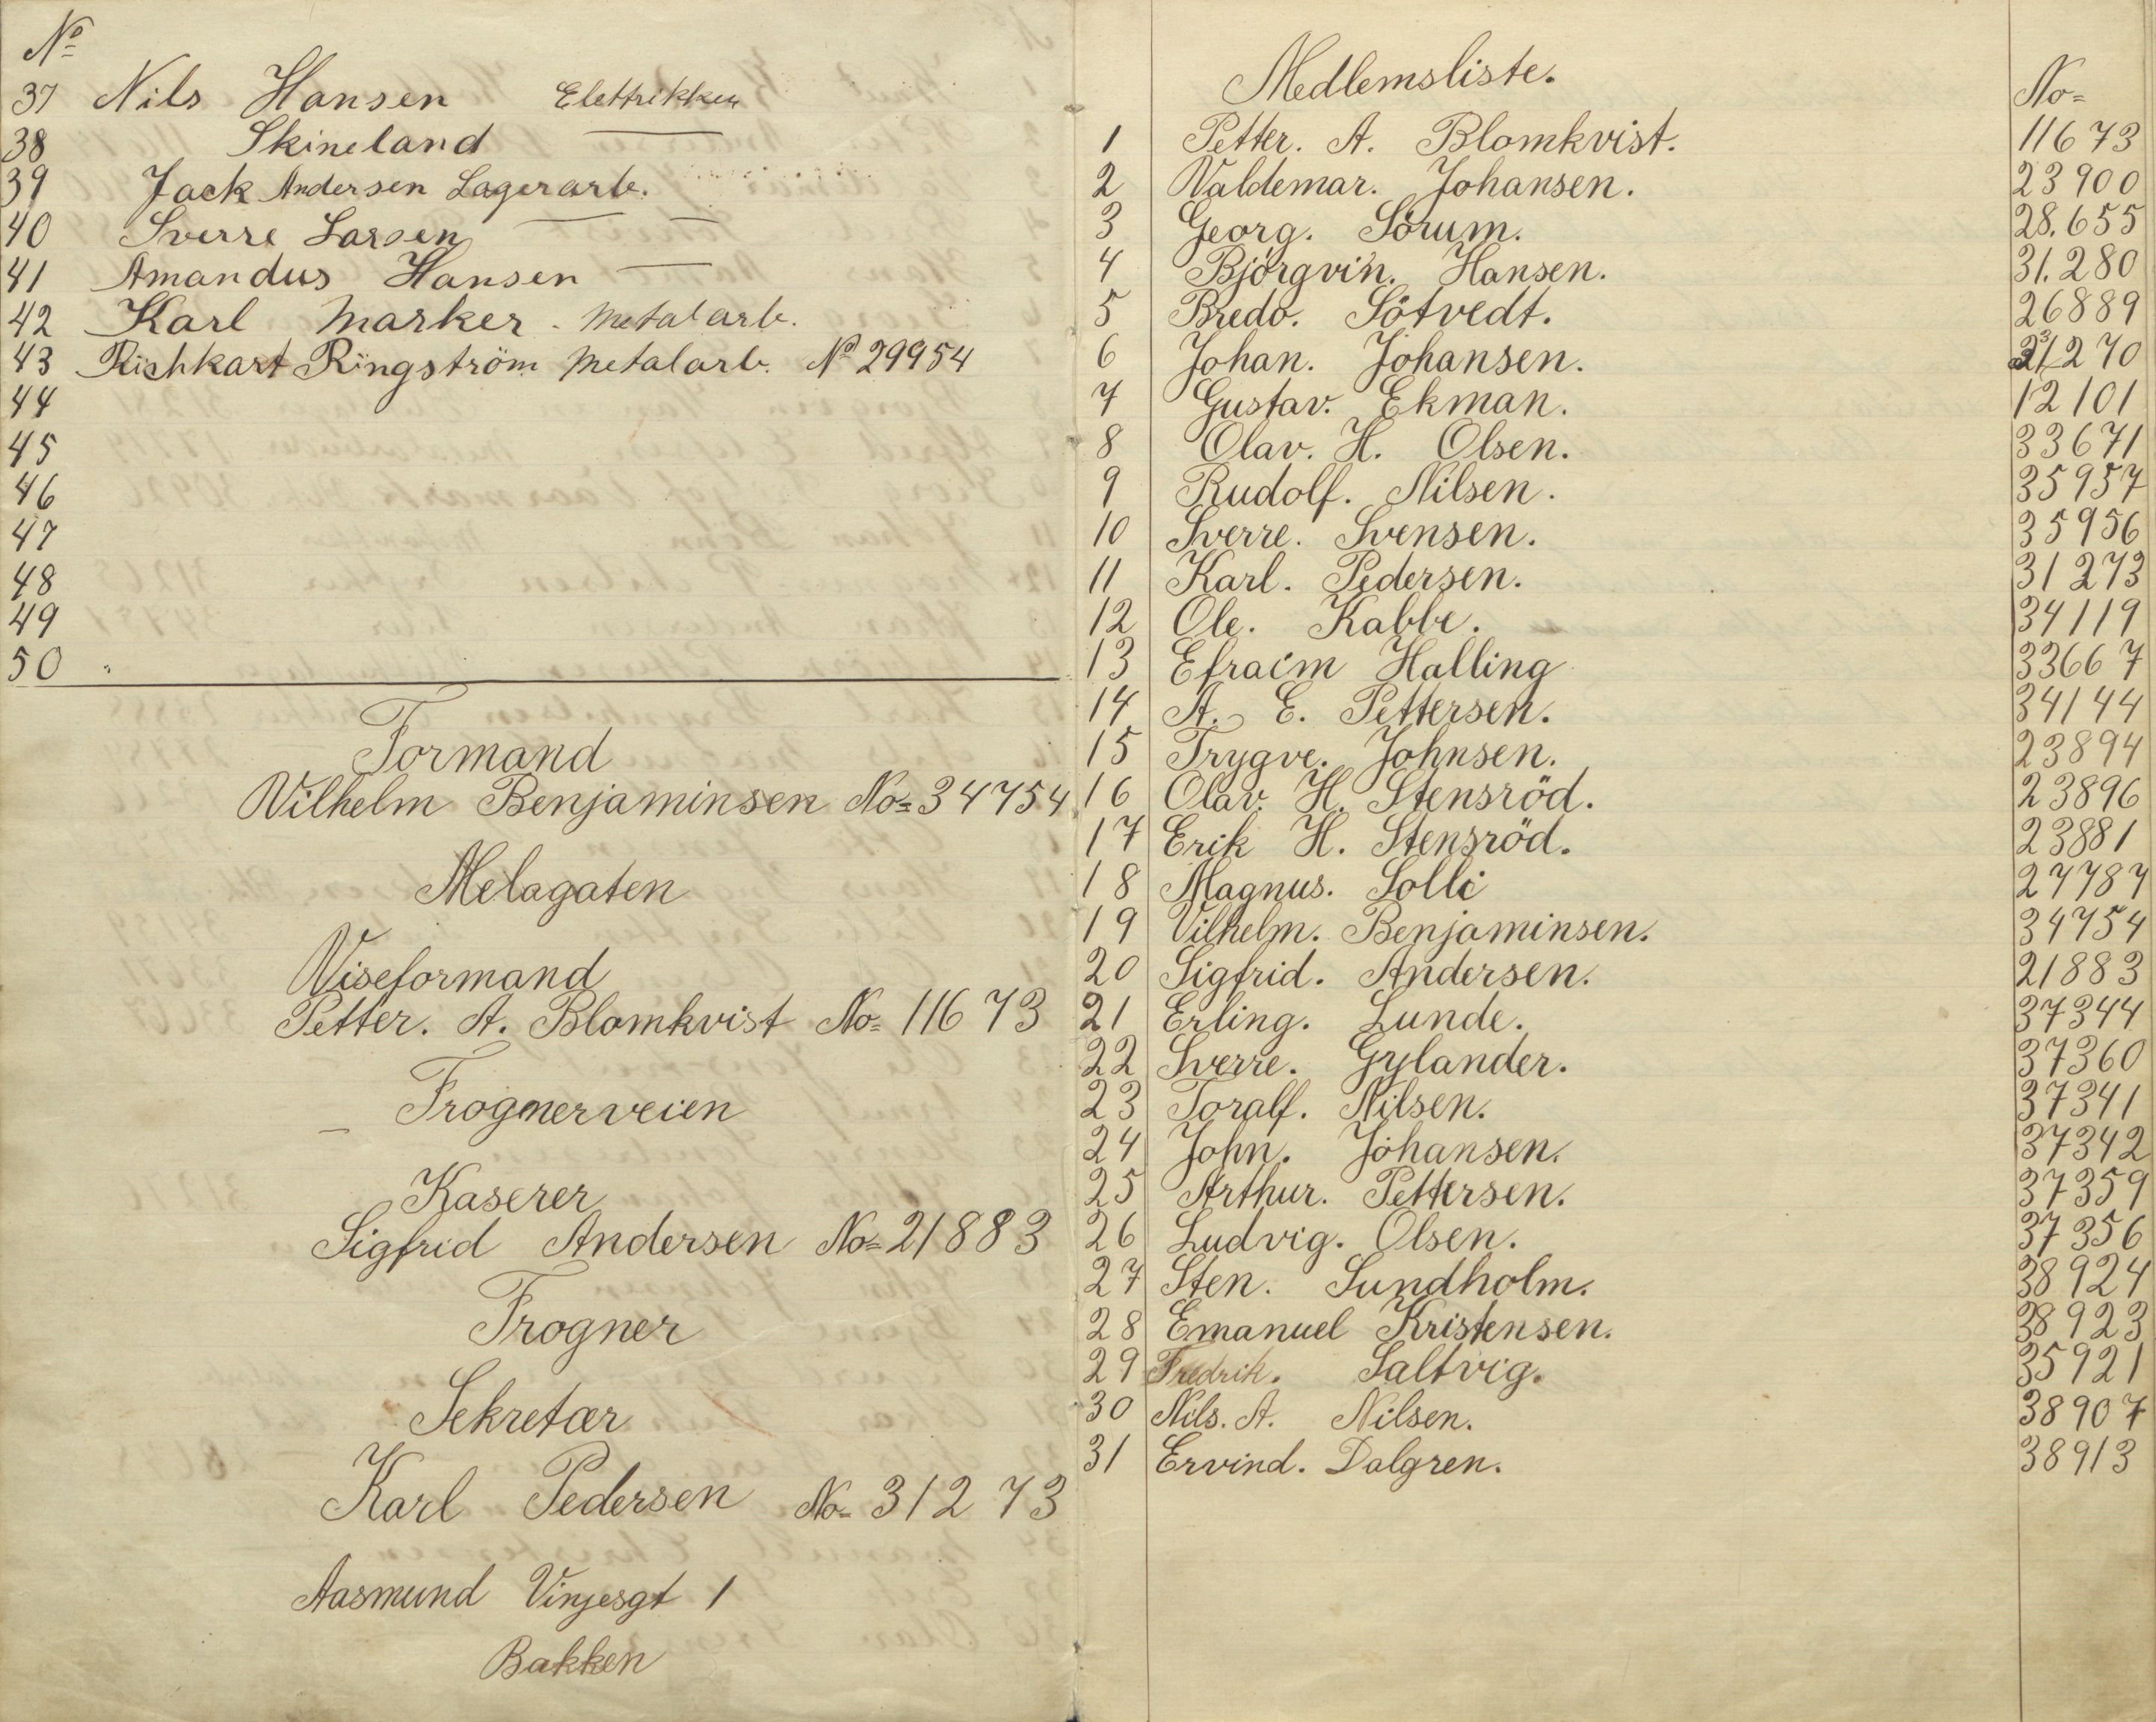 No
37 Nils Hansen Elettrikken
38 Skineland —
39 Jack Andersen Lagerarb.
40 Sverre Larsen — —
41 Amandus Hansen —
42 Karl Marker - Metalarb.
43 Rishkart Ringström Metalarb. No 29954
44
45
46
47
48
49
50
Formand
Vilhelm Benjaminsen No= 34754
Melagaten
Viseformand
Petter. A. Blomkvist No= 11673
Frognerveien
Kaserer
Sigfrid Andersen No= 21883
Frogner
Sekretær
Karl Pedersen No= 31273
Aasmund Vinjesgt 1
Bakken
Medlemsliste. No=
1 Petter. A. Blomkvist. 11673
2 Valdemar. Johansen. 23900
3 Georg. Sörum. 28.655
4 Björgvin. Hansen. 31.280
5 Bredo. Sötvedt. 26889
6 Johan. Johansen. 31270
7 Gustav. Ekman. 12101
8 Olav. H. Olsen. 33671
9 Rudolf. Nilsen. 35957
10 Sverre. Svensen. 35956
11 Karl. Pedersen. 31273
12 Ole. Kabbe. 34119
13 Efraim Halling 33667
14 A. E. Pettersen. 34144
15 Trygve. Johnsen. 23894
16 Olav. H. Stensröd. 23896
17 Erik H. Stensröd. 23881
18 Magnus. Solli 27787
19 Vilhelm. Benjaminsen. 34754
20 Sigfrid. Andersen. 21883
21 Erling. Lunde. 37344
22 Sverre. Gylander. 37360
23 Toralf. Nilsen. 37341
24 John. Johansen. 37342
25 Arthur. Pettersen. 37359
26 Ludvig. Olsen. 37356
27 Sten. Sundholm. 38924
28 Emanuel Kristensen. 38923
29 Fredrik. Saltvig. 35921
30 Nils. A. Nilsen. 38907
31 Ervind. Dalgren. 38913